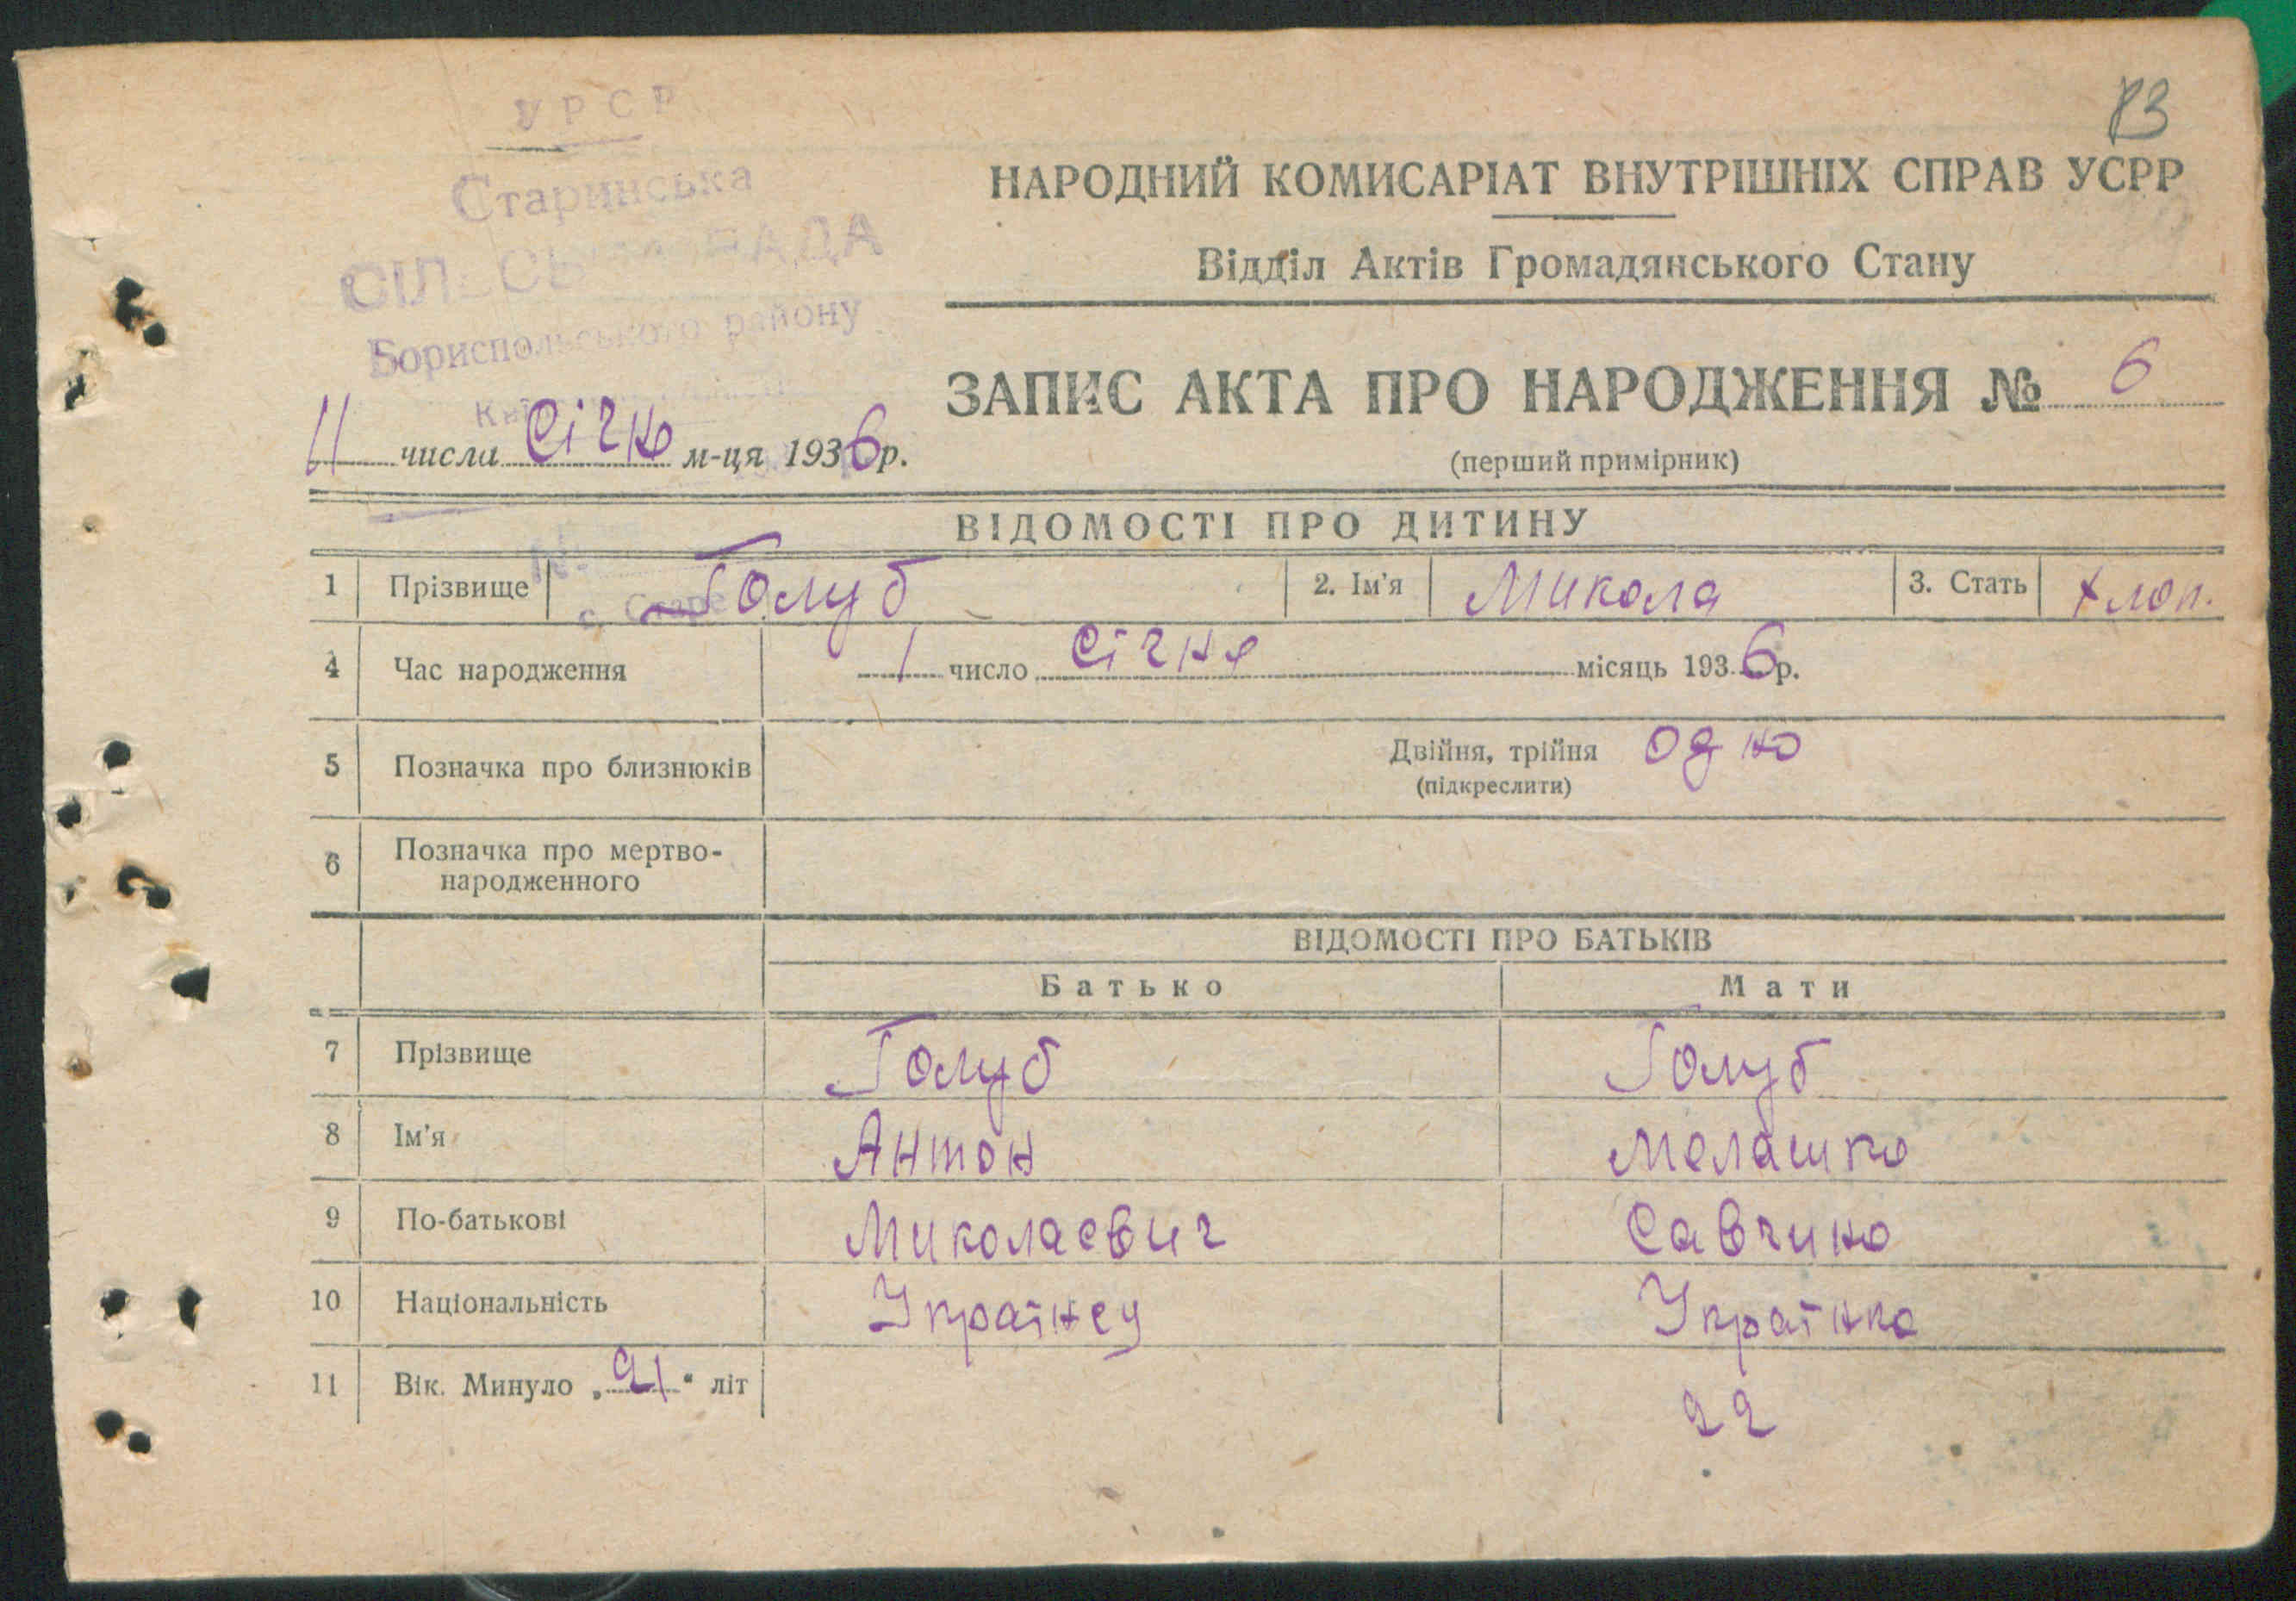 УРСР
83
Старинська
СІЛЬСЬКА РАДА
Бориспольського району
НАРОДНИЙ КОМИСАРІАТ ВНУТРІШНІХ СПРАВ УСРР
Відділ Актів Громадянського Стану
ЗАПИС АКТА ПРО НАРОДЖЕННЯ № 6
(перший примірник)
11 числа Січня м-ця 1936 р.
ВІДОМОСТІ ПРО ДИТИНУ
с. Старе
1 Прізвище Голуб 2. Ім'я Микола 3. Стать хлоп.
4 Час народження 1 число Січня місяць 1936 р.
5 Позначка про близнюків Двійня, трійня одно
(підкреслити)
6 Позначка про мертво-
народженного
ВІДОМОСТІ ПРО БАТЬКІВ
Батько Мати
7 Прізвище Голуб Голуб
8 Ім'я Антон Мелашка
9 По-батькові Миколаевич Савчина
10 Національність Українец Українка
11 Вік. Минуло „21“ літ 22